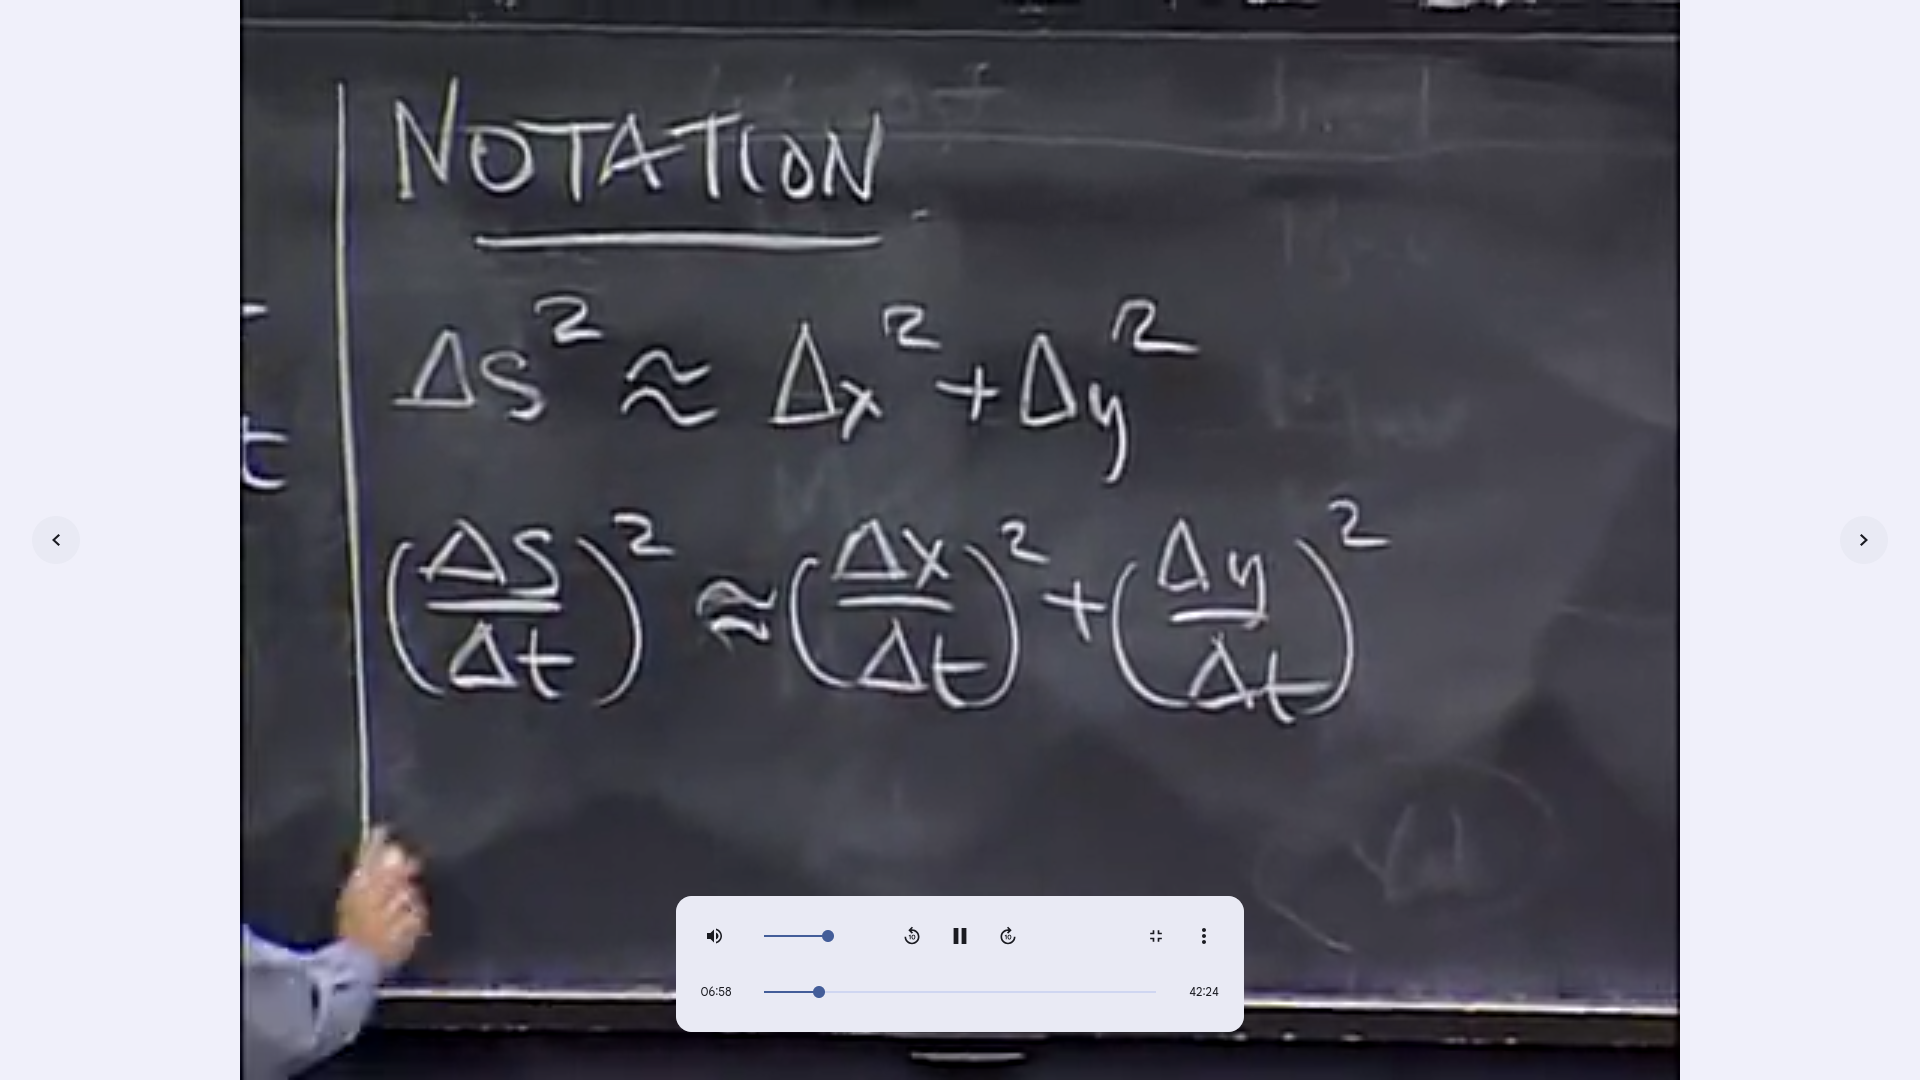 NOTATION
ΔS² ≈ Δx² + Δy²
(ΔS/Δt)² ≈ (Δx/Δt)² + (Δy/Δt)²
t
10
10
06:58
42:24